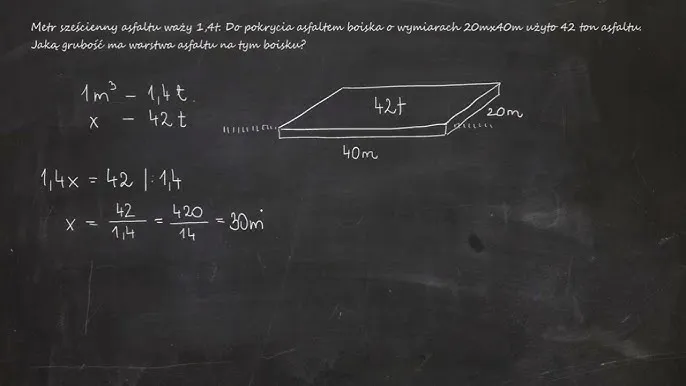 Metr sześcienny asfaltu waży 1,4t. Do pokrycia asfaltem boiska o wymiarach 20mx40m użyto 42 ton asfaltu.
Jaką grubość ma warstwa asfaltu na tym boisku?
1m³ – 1,4t
x – 42t
42t
20m
40m
1,4x = 42 |:1,4
x = 42/1,4 = 420/14 = 30m